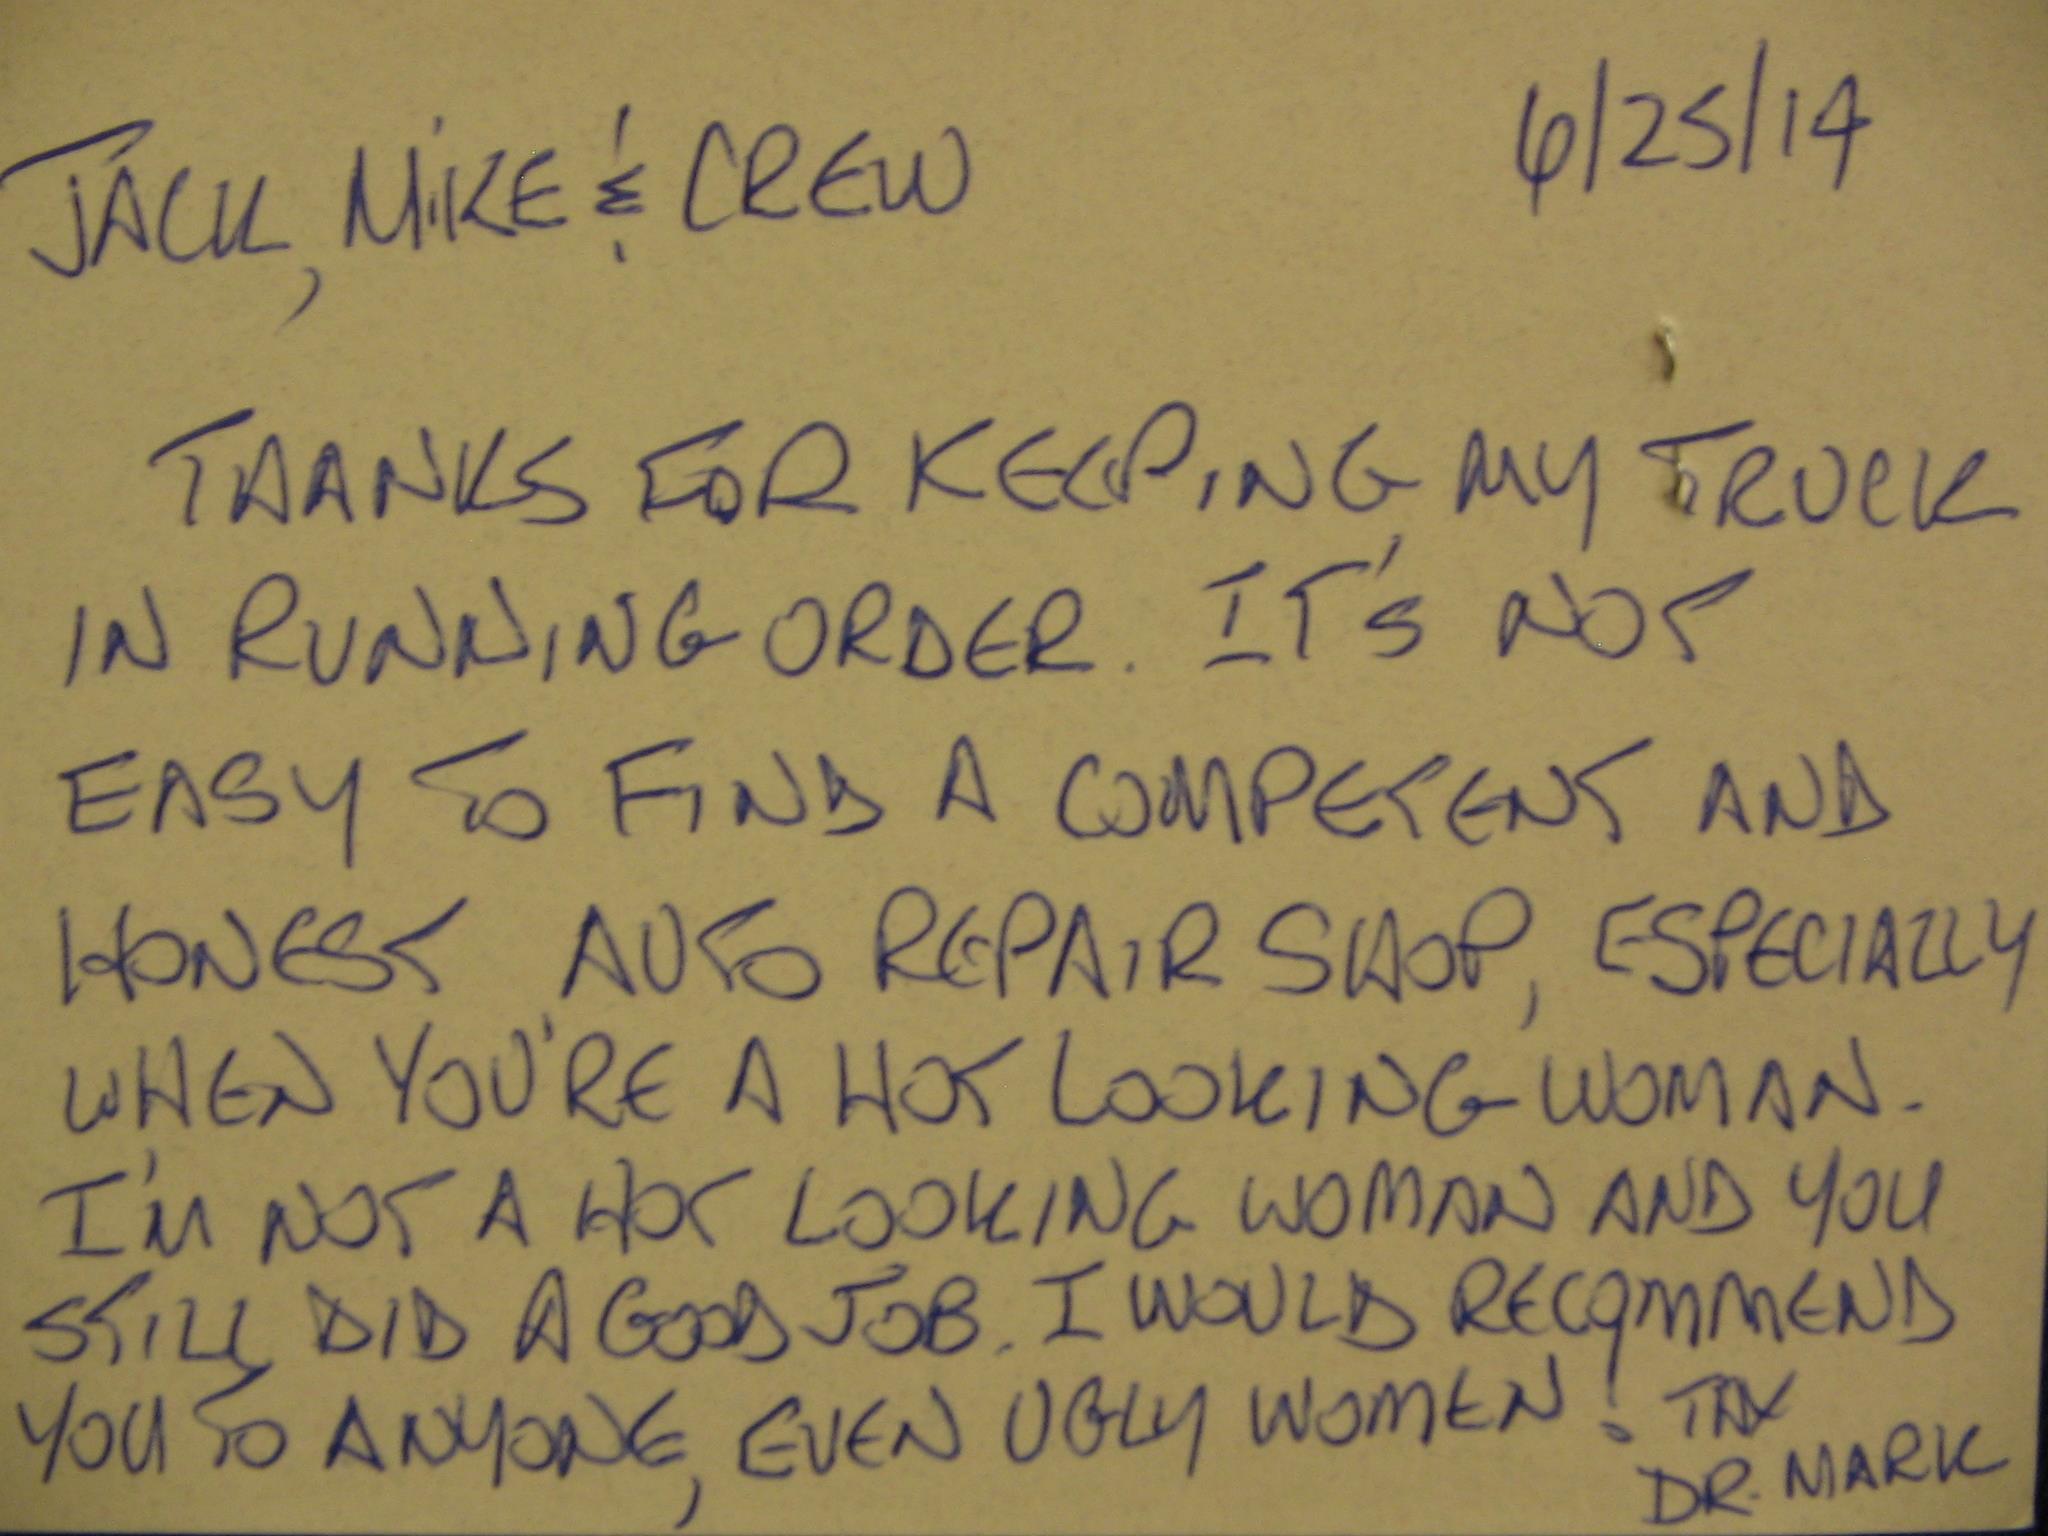 JACK, MIKE & CREW 6/25/14
THANKS FOR KEEPING MY TRUCK
IN RUNNING ORDER. IT'S NOT
EASY TO FIND A COMPETENT AND
HONEST AUTO REPAIR SHOP, ESPECIALLY
WHEN YOU'RE A HOT LOOKING WOMAN.
I'M NOT A HOT LOOKING WOMAN AND YOU
STILL DID A GOOD JOB. I WOULD RECOMMEND
YOU TO ANYONE, EVEN UGLY WOMEN! TAX
DR. MARK